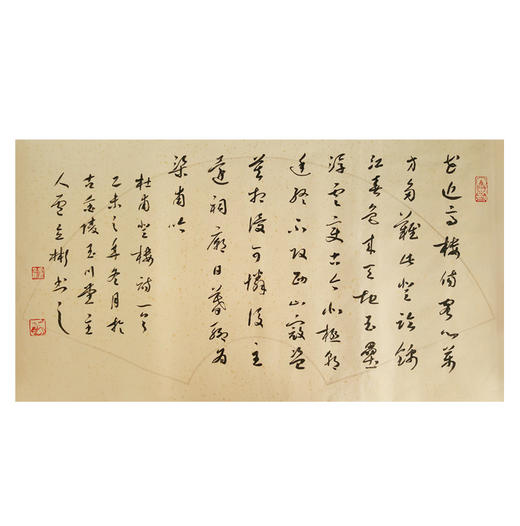 花近高樓傷客心萬
方多難此登臨錦
江春色來天地玉壘
浮雲變古今北極朝
廷終不改西山寇盜
莫相侵可憐後主
還祠廟日暮聊為
梁甫吟
杜甫登樓詩一首
乙未之年冬月於
古陵玉川堂主
人立彬书之